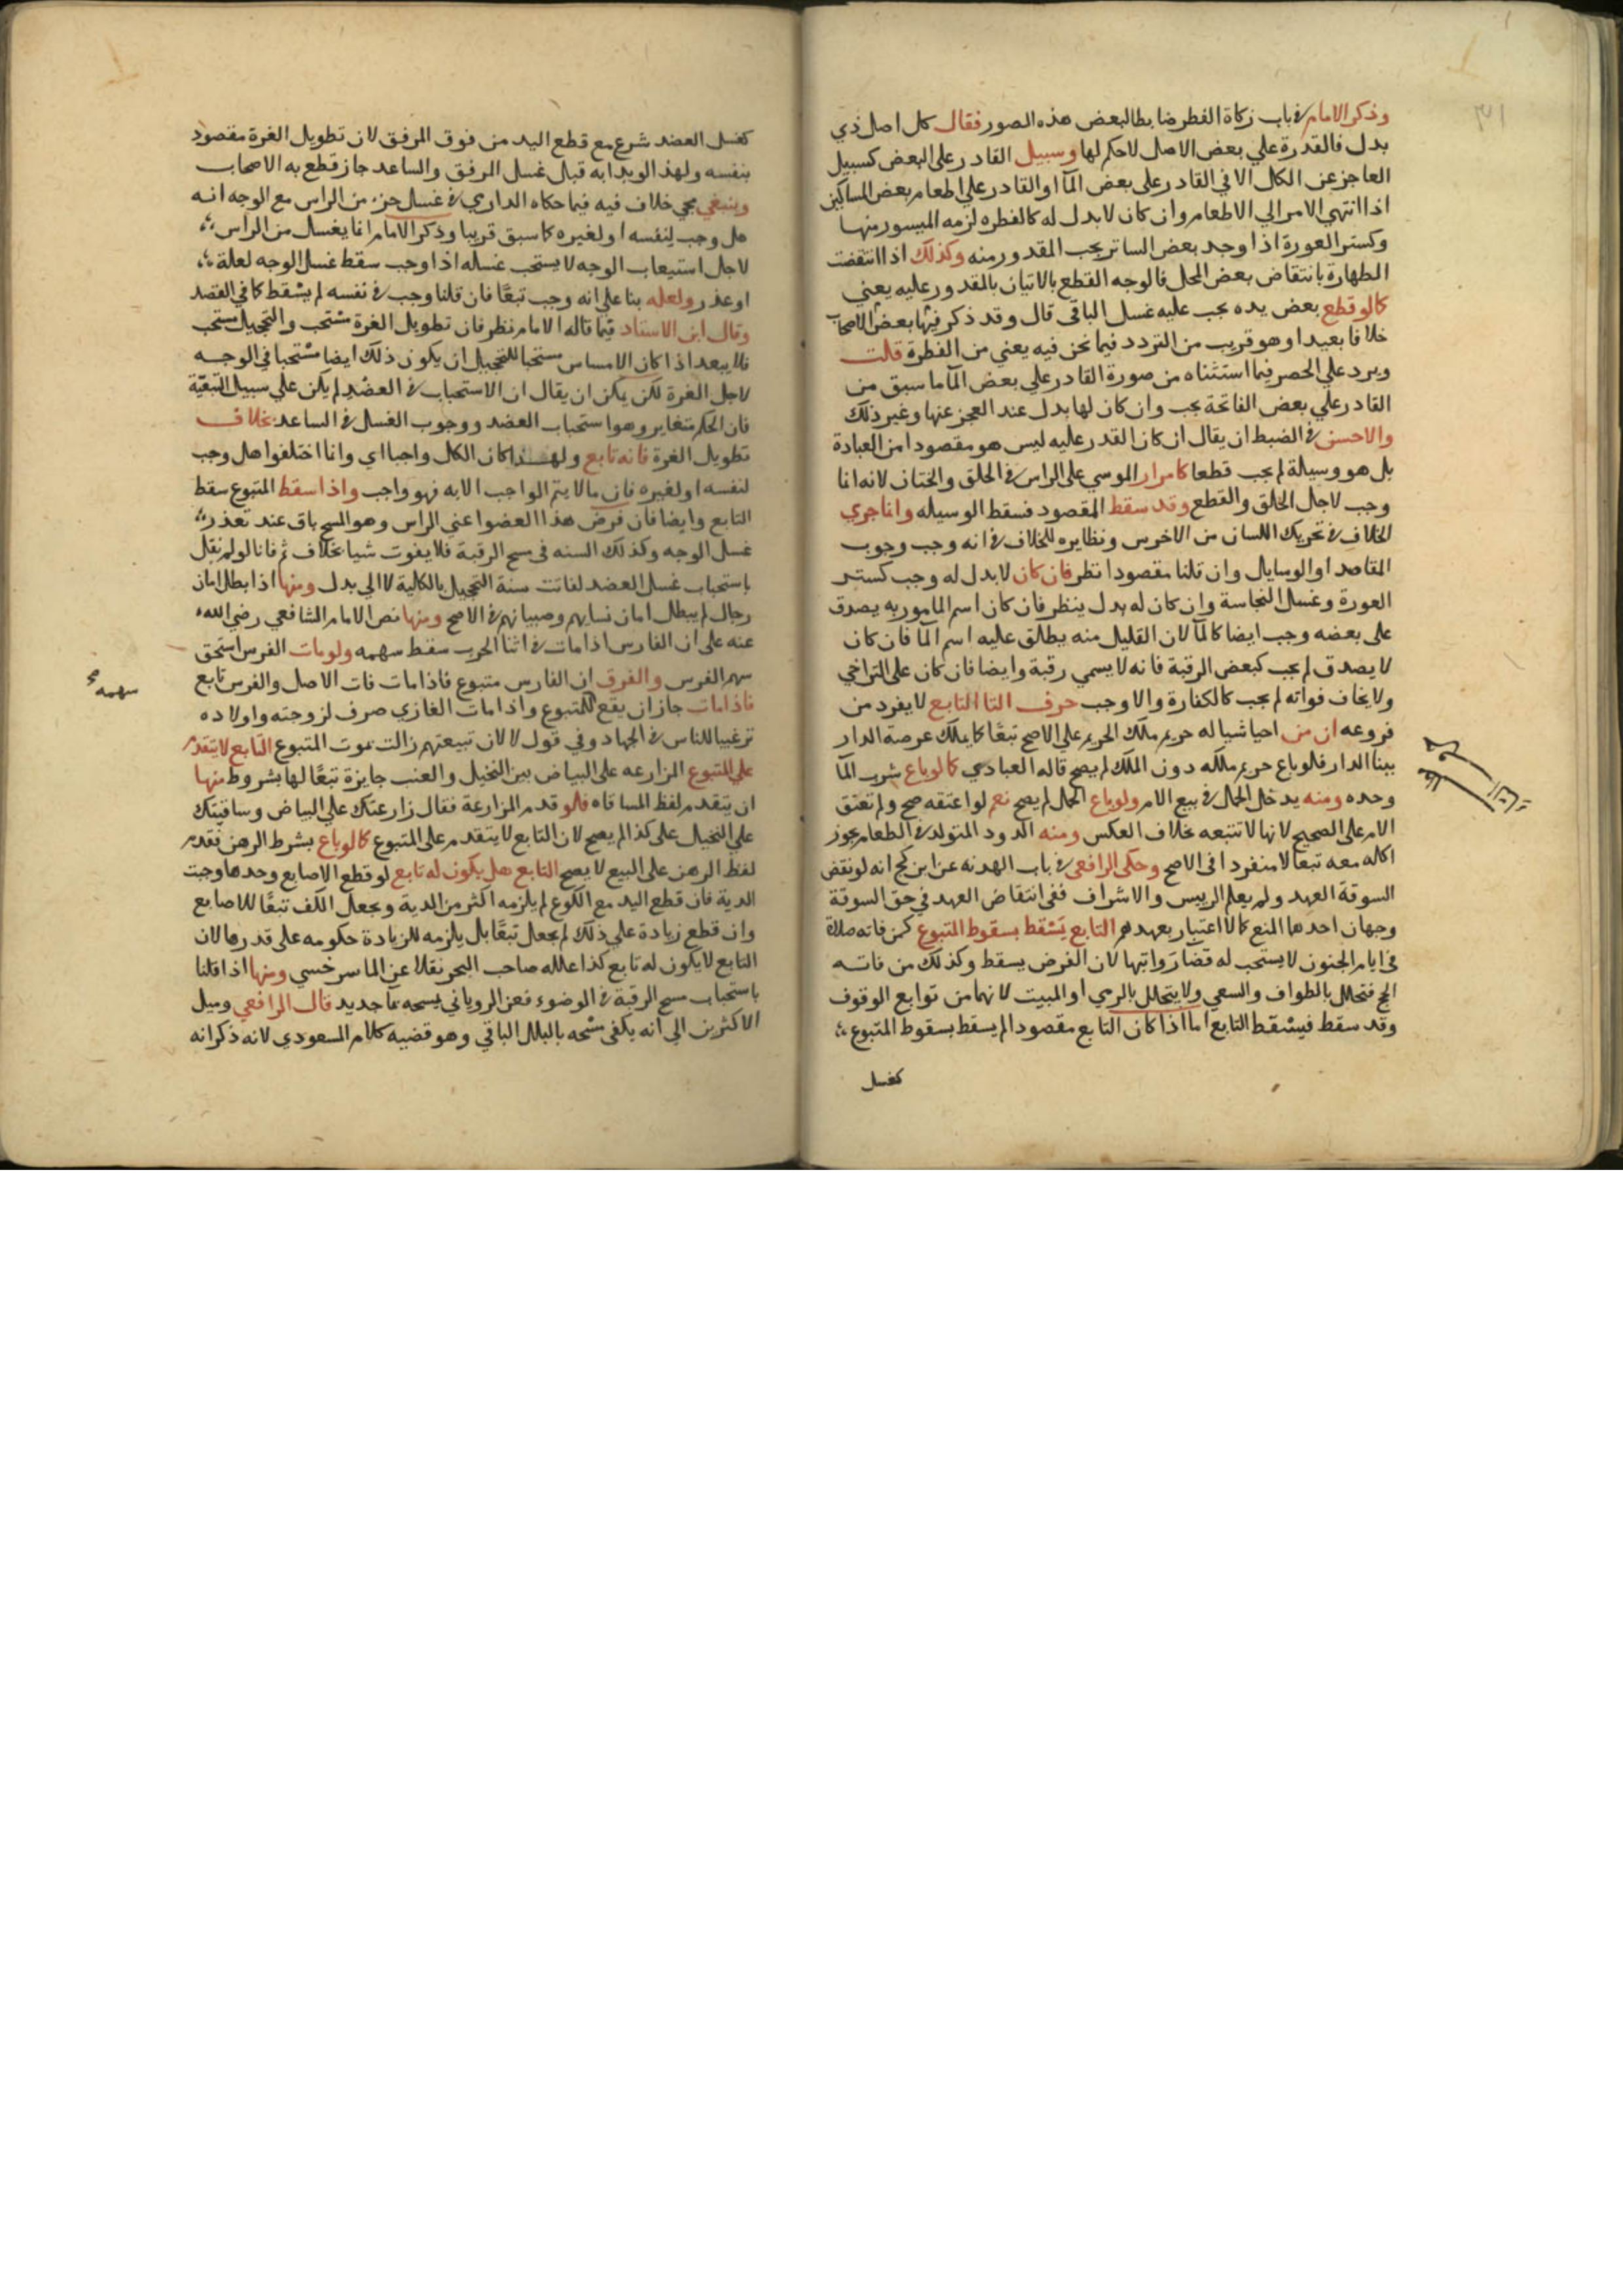 وذكر الامام في باب زكاة الفطر ضابطا لبعض هذه الصور فقال كل اصل ذي
بدل فالقدرة علي بعض الاصل لا حكم لها وسبيل القادر على البعض كسبيل
العاجز عن الكل الا في القادر على بعض المآ او القادر علي اطعام بعض المساكين
اذا انتهي الامر الي الاطعام وان كان لا بدل له كالفطره لزمه الميسور منها
وكستر العورة اذا وجد بعض الساتر يجب المقدور منه وكذلك اذا انتقضت
الطهارة بانتقاض بعض المحل فالوجه القطع بالاتيان بالمقدور عليه يعني
كالو قطع بعض يده يجب عليه غسل الباقي قال وقد ذكر فيها بعض الاصحاب
خلافا بعيدا وهو قريب من التردد فيما نحن فيه يعني من الفطرة قلت
ويرد علي الحصر فيما استثناه من صورة القادر علي بعض المآ ما سبق من
القادر علي بعض الفاتحة يجب وان كان لها بدل عند العجز عنها وغير ذلك
والاحسن في الضبط ان يقال ان كان القدر عليه ليس هو مقصودا من العبادة
بل هو وسيلة لم يجب قطعا كامرار الموسي على الراس في الحلق والختان لانه انما
وجب لاجل الحلق والقطع وقد سقط المقصود فسقط الوسيله وانما جري
الخلاف في تحريك اللسان من الاخرس ونظايره للخلاف في انه وجب وجوب
المقاصد او الوسايل وان قلنا مقصودا نظر فان كان لا بدل له وجب كستر
العورة وغسل النجاسة وان كان له بدل ينظر فان كان اسم المامور به يصدق
على بعضه وجب ايضا كالمآ لان القليل منه يطلق عليه اسم المآ فان كان
لا يصدق لم يجب كبعض الرقبة فانه لا يسمي رقبة وايضا فان كان على التراخي
ولا يخاف فواته لم يجب كالكفارة والا وجب حرف التا التابع لا يفرد من
فروعه ان من احيا شيا له حريم ملك الحريم علي الاصح تبعًا كما يملك عرصة الدار
ببنا الدار فلو باع حريم ملكه دون الملك لم يصح قاله العبادي كما لو باع شرب المآ
وحده ومنه يدخل الحمل في بيع الام ولو باع الحمل لم يصح نعم لو اعتقه صح ولم تعتق
الام على الصحيح لانها لا تتبعه بخلاف العكس ومنه الدود المتولد في الطعام يجوز
اكله معه تبعا لا منفردا في الاصح وحكى الرافعي في باب الهدنه عن ابن كج انه لو نقض
السوقة العهد ولم يعلم الرييس والاشراف ففي انتقاض العهد في حق السوقة
وجهان احدهما المنع كما لا اعتبار بعهدهم التابع يسْقط بسقوط المتبوع كمن فاته صلاة
في ايام الجنون لا يستحب له قضا رواتبها لان الفرض يسقط وكذلك من فاته
الحج فتحلل بالطواف والسعي ولا يتحلل بالرمي او المبيت لانهما من توابع الوقوف
وقد سقط فيسْقط التابع اما اذا كان التابع مقصودا لم يسقط بسقوط المتبوع
كغسل
كغسل العضد شرع مع قطع اليد من فوق المرفق لان تطويل الغرة مقصود
بنفسه ولهذا لو بدا به قبل غسل المرفق والساعد جاز قطع به الاصحاب
وينبغي مجي خلاف فيه فيما حكاه الداري في غسل جزء من الراس مع الوجه انه
هل وجب لنفسه او لغيره كما سبق قريبا وذكر الامام انما يغسل من الراس
لاجل استيعاب الوجه لا يستحب غسله اذا وجب سقط غسل الوجه لعلة
او عذر ولعله بنا علي انه وجب تبعًا فان قلنا وجب في نفسه لم يسْقط كما في العضد
وقال ابن الاستاد فيما قاله الامام نظر فان تطويل الغرة مسْتحب والتحجيل مستحب
فلا يبعد اذا كان الامساس مستحبا للتحجيل ان يكون ذلك ايضا مسْتحبا في الوجه
لاجل الغرة لكن يمكن ان يقال ان الاستحباب في العضد لم يكن علي سبيل التبعية
فان الحكم متغاير وهو استحباب العضد ووجوب الغسل في الساعد بخلاف
تطويل الغرة فانه تابع ولهذا كان الكل واجبا اي وانما اختلفوا هل وجب
لنفسه او لغيره فان ما لا يتم الواجب الا به فهو واجب واذا سقط المتبوع سقط
التابع وايضا فان فرض هذا العضو اعني الراس وهو المسح باق عند تعذر
غسل الوجه وكذلك السنه في مسح الرقبة فلا يفوت شيا بخلاف ثم فانا لو لم نقل
باستحباب غسل العضد لفاتت سنة التحجيل بالكلية لا الي بدل ومنها اذا بطل امان
رجال لم يبطل امان نسايهم وصبيانهم في الاصح ومنها نص الامام الشافعي رضي الله
عنه على ان الفارس اذا مات في اثنا الحرب سقط سهمه ولو مات الفرس استحق
سهم الفرس والفرق ان الفارس متبوع فاذا مات فات الاصل والفرس تابع
سهمه
فاذا مات جاز ان يقع للمتبوع واذا مات الغازي صرف لزوجته واولاده
ترغيبا للناس في الجهاد وفي قول لا لان تبيعتهم زالت بموت المتبوع التابع لا يتقدم
علي المتبوع المزارعه على البياض بين النخيل والعنب جايزة تبعًا لها بشروط منها
ان يتقدم لفظ المساقاه فلو قدم المزارعة فقال زارعتك علي البياض وساقيتك
علي النخيل على كذا لم يصح لان التابع لا يتقدم على المتبوع كما لو باع بشرط الرهن فقدم
لفظ الرهن على البيع لا يصح التابع هل يكون له تابع لو قطع الاصابع وحدها وجبت
الدية فان قطع اليد مع الكوع لم يلزمه اكثر من الدية ويجعل الكف تبعًا للاصابع
وان قطع زيادة علي ذلك لم يجعل تبعًا بل يلزمه للزيادة حكومه على قدرها لان
التابع لا يكون له تابع كذا علله صاحب البحر نقلا عن الماسرخسي ومنها اذا قلنا
باستحباب مسح الرقبة في الوضوء فعن الروياني يمسحه بمآ جديد قال الرافعي وميل
الاكثرين الي انه يكفي مسْحه بالبلل الباقي وهو قضيه كلام المسعودي لانه ذكر انه